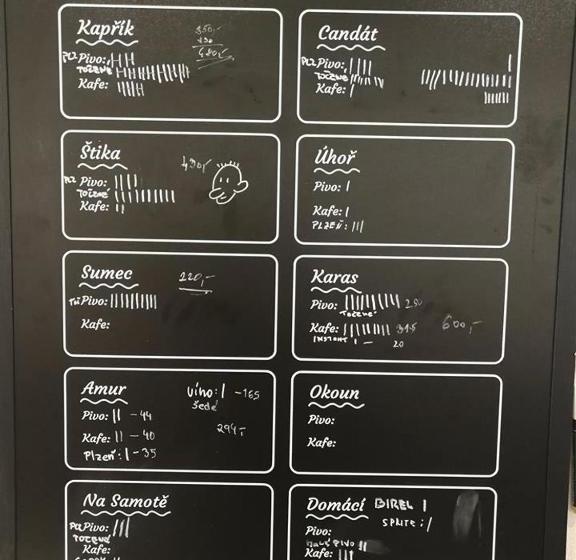 Kapřík
350,-
480,-
PLZ Pivo:
TOČENÉ
Kafe:
Candát
PLZ Pivo:
TOČENÉ
Kafe:
Štika
PLZ Pivo:
TOČENÉ
Kafe:
Úhoř
Pivo: |
Kafe: |
PLZEŇ: |||
Sumec
220,-
Pivo:
Kafe:
Karas
Pivo: 250
TOČENÉ
Kafe: 315
INSTANT | — 20
600,-
Amur
Pivo: || – 44
Kafe: || – 40
Plzeň: | – 35
víno: | – 165
šedé
294,-
Okoun
Pivo:
Kafe:
Na Samotě
Pivo: |||
TOČENÉ
Kafe:
Domácí BIREL |
SPRITE: /
Pivo:
Kafe: |||